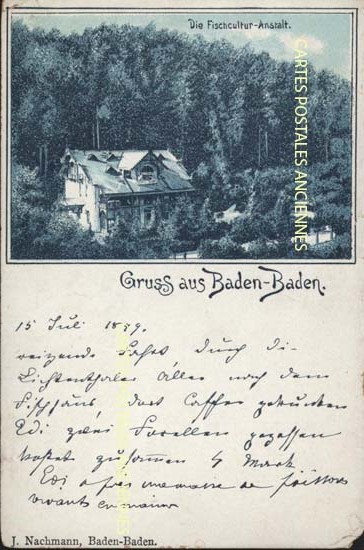 Die Fischcultur-Anstalt.
CARTES POSTALES ANCIENNES
Gruss aus Baden-Baden.
15 Juli 1899.
reizende Fahrt durch di-
Lichtenthaler Allee nach dem
Fischhaus dort Caffee getrunken
Edi zwei Forellen gegessen
kostet zusammen 4 Mark
Edi a
J. Nachmann, Baden-Baden.